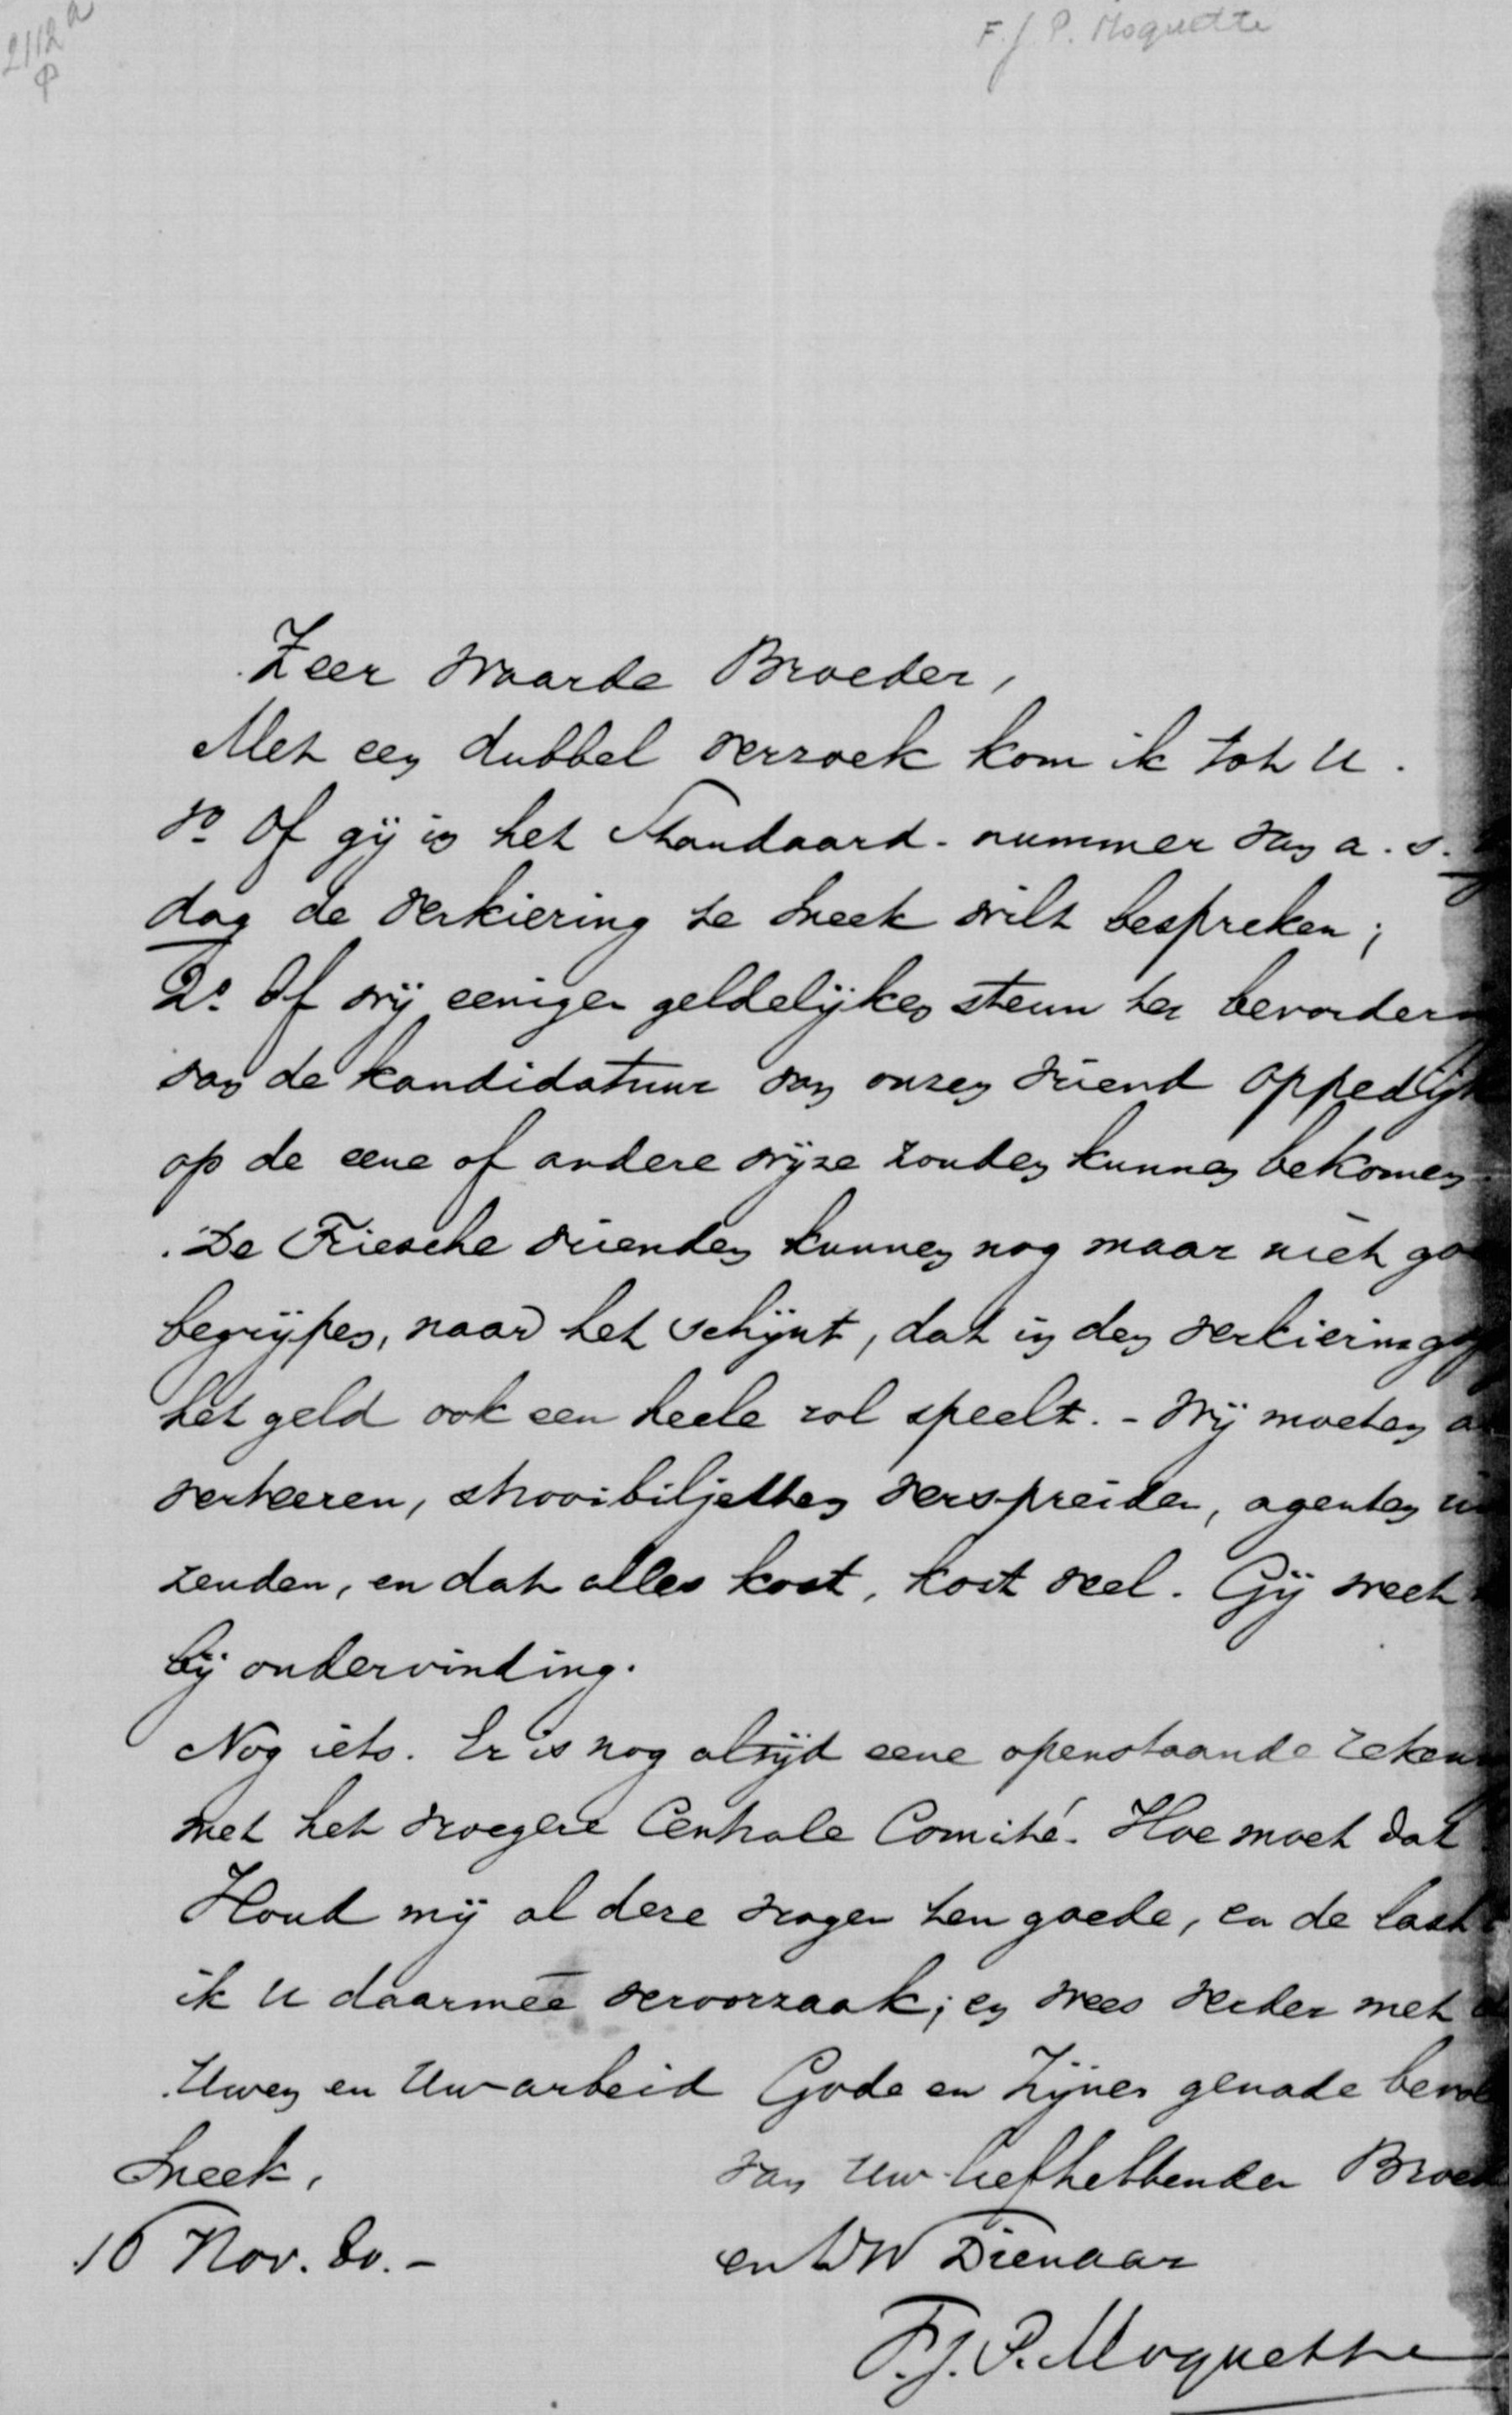 2112a
F. J. P. Moquette
Zeer waarde Broeder,
Met een dubbel verzoek kom ik tot U.
1o Of gij in het Standaard-nummer van a.s.
dag de verkiezing te Sneek wilt bespreken;
2o Of wij eenigen geldelijken steun ter bevorder
van de kandidatuur van onzen vriend Oppedijk
op de eene of andere wijze zouden kunnen bekomen.
De Friesche vrienden kunnen nog maar niet go
begrijpen, naar het schijnt, dat in den verkiezing
het geld ook een heele rol speelt. - Wij moeten a
verteeren, strooibiljetten verspreiden, agenten ui
zenden, en dat alles kost, kost veel. Gij weet
bij ondervinding.
Nog iets. Er is nog altijd eene openstaande reken
met het vroegere Centrale Comité. Hoe moet dat
Houd mij al deze vragen ten goede, en de last
ik U daarmeê veroorzaak; en wees verder met
Uwen en Uw arbeid Gode en Zijner genade bevol
Sneek,
van Uw liefhebbenden Broed
16 Nov. 80. -
en UW Dienaar
F. J. P. Moquette